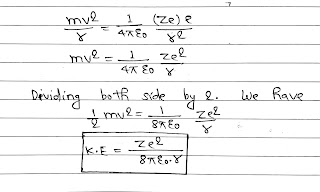 mv²/r = 1/4πε₀ (Ze)e/r²
mv² = 1/4πε₀ Ze²/r
Dividing both side by 2. We have
1/2 mv² = 1/8πε₀ Ze²/r
K.E = Ze²/8πε₀.r